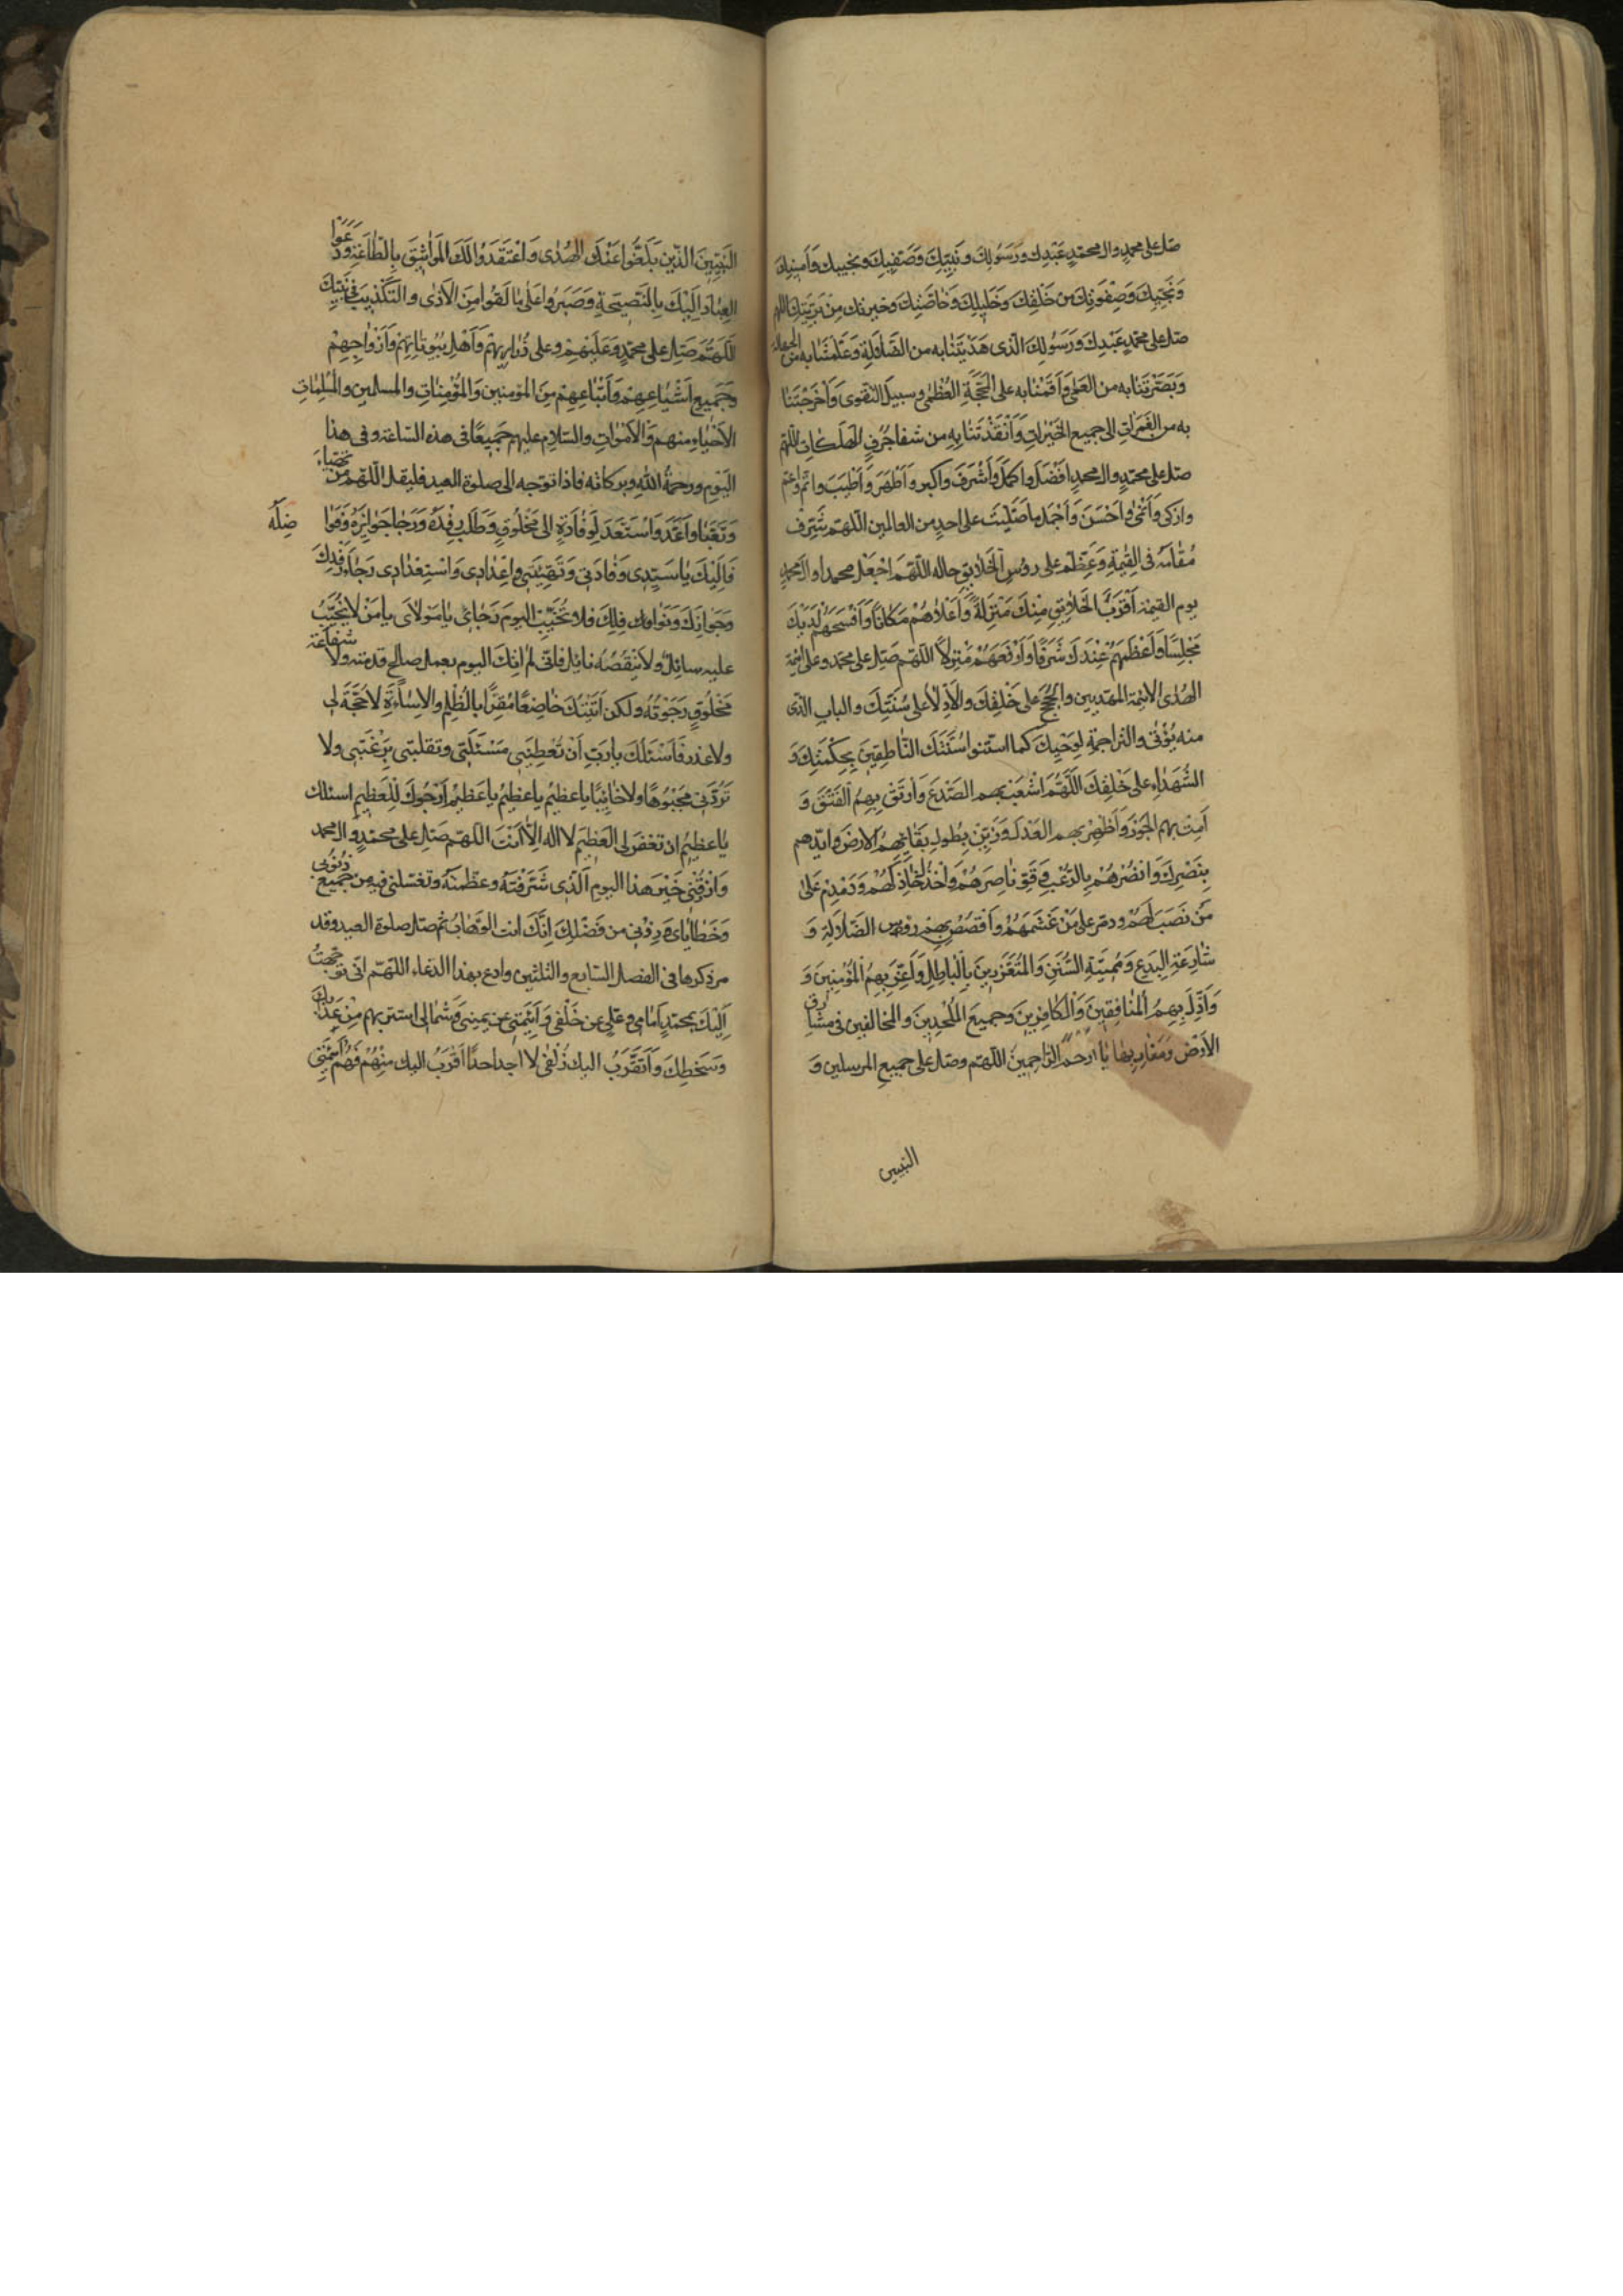 صل على محمد وال محمد عبدك ورسولك ونبيك وصفيك ونجيبك وامينك
ونجيك وصفوتك من خلقك وخليلك وخاصتك وخيرتك من بريتك اللهم
صل على محمد عبدك ورسولك الذى هديتنا به من الضلالة وعلمتنا به من الجهالة
وبصرتنا به من العمى واقمتنا به على المحجة العظمى وسبيل التقوى واخرجتنا
به من الغمرات الى جميع الخيرات وانقذتنا به من شفا جرف الهلكات اللهم
صل على محمد وال محمد افضل واكمل واشرف واكبر واطهر واطيب واتم واعم
وازكى وانمى واحسن واجمل ما صليت على احد من العالمين اللهم شرف
مقامه فى القيمة وعظم على رؤس الخلايق حاله اللهم اجعل محمدا وال محمد
يوم القيمة اقرب الخلايق منك منزلة واعلاهم مكانا وافسحهم لديك
مجلسا واعظمهم عندك شرفا وارفعهم منزلا اللهم صل على محمد وعلى ائمة
الهدى الائمة المهديين والحجج على خلقك والادلاء على سنتك والباب الذى
منه يؤتى والتراجمة لوحيك كما استنوا سنتك الناطقين بحكمتك و
الشهداء على خلقك اللهم اشعب بهم الصدع وارتق بهم الفتق و
امت بهم الجور واظهر بهم العدل وزين بطول بقائهم الارض وايدهم
بنصرك وانصرهم بالرعب وقو ناصرهم واخذل خاذلهم ودمدم على
من نصب لهم ودمر على من غشمهم واقصص بهم رؤس الضلالة و
شارعة البدع ومميتة السنن والمتعززين بالباطل واعز بهم المؤمنين و
واذل بهم المنافقين والكافرين وجميع الملحدين والمخالفين فى مشارق
الارض ومغاربها يا ارحم الراحمين اللهم وصل على جميع المرسلين و
النبيين
النبيين الذين بلغوا عنك الهدى واعتقدوا لك المواثيق بالطاعة ودعوا
العباد اليك بالنصيحة وصبروا على ما لقوا من الاذى والتكذيب فى جنبك
اللهم صل على محمد وعليهم وعلى ذراريهم واهل بيوتاتهم وازواجهم
وجميع اشياعهم واتباعهم من المؤمنين والمؤمنات والمسلمين والمسلمات
الاحياء منهم والاموات والسلام عليهم جميعا فى هذه الساعة وفى هذا
اليوم ورحمة الله وبركاته فاذا توجه الى صلوة العيد فليقل اللهم من تهياء
وتعبا واعد واستعد لوفادة الى مخلوق وطلب رفده ورجا جوائزه وفوا
ضله
فاليك يا سيدى وفادتى وتهيئتى واعدادى واستعدادى رجاء رفدك
وجوائزك ونوافلك فلا تخيب اليوم رجائى يا مولاى يا من لا يخيب
عليه سائل ولا ينقصه نائل فانى لم اتك اليوم بعمل صالح قدمته ولا شفاعة
مخلوق رجوته ولكن اتيتك خاضعا مقرا بالظلم والاساءة لا حجة لى
ولا عذر فاسئلك يا رب ان تعطينى مسئلتى وتقلبنى برغبتى ولا
تردنى مجبوها ولا خائبا يا عظيم يا عظيم يا عظيم ارجوك للعظيم اسئلك
يا عظيم ان تغفر لى العظيم لا اله الا انت اللهم صل على محمد وال محمد
وارزقنى خير هذا اليوم الذى شرفته وعظمته وتغسلنى فيه من جميع ذنوبى
وخطاياى وزدنى من فضلك انك انت الوهاب ثم صل صلوة العيد وقد
مر ذكرها فى الفصل السابع والثلثين وادع بهذا الدعاء اللهم انى توجهت
اليك بمحمد امامى وعلى من خلفى وائمتى عن يمينى وشمالى استتر بهم من عذابك
وسخطك واتقرب اليك زلفى لا اجد احدا اقرب اليك منهم فهم ائمتى